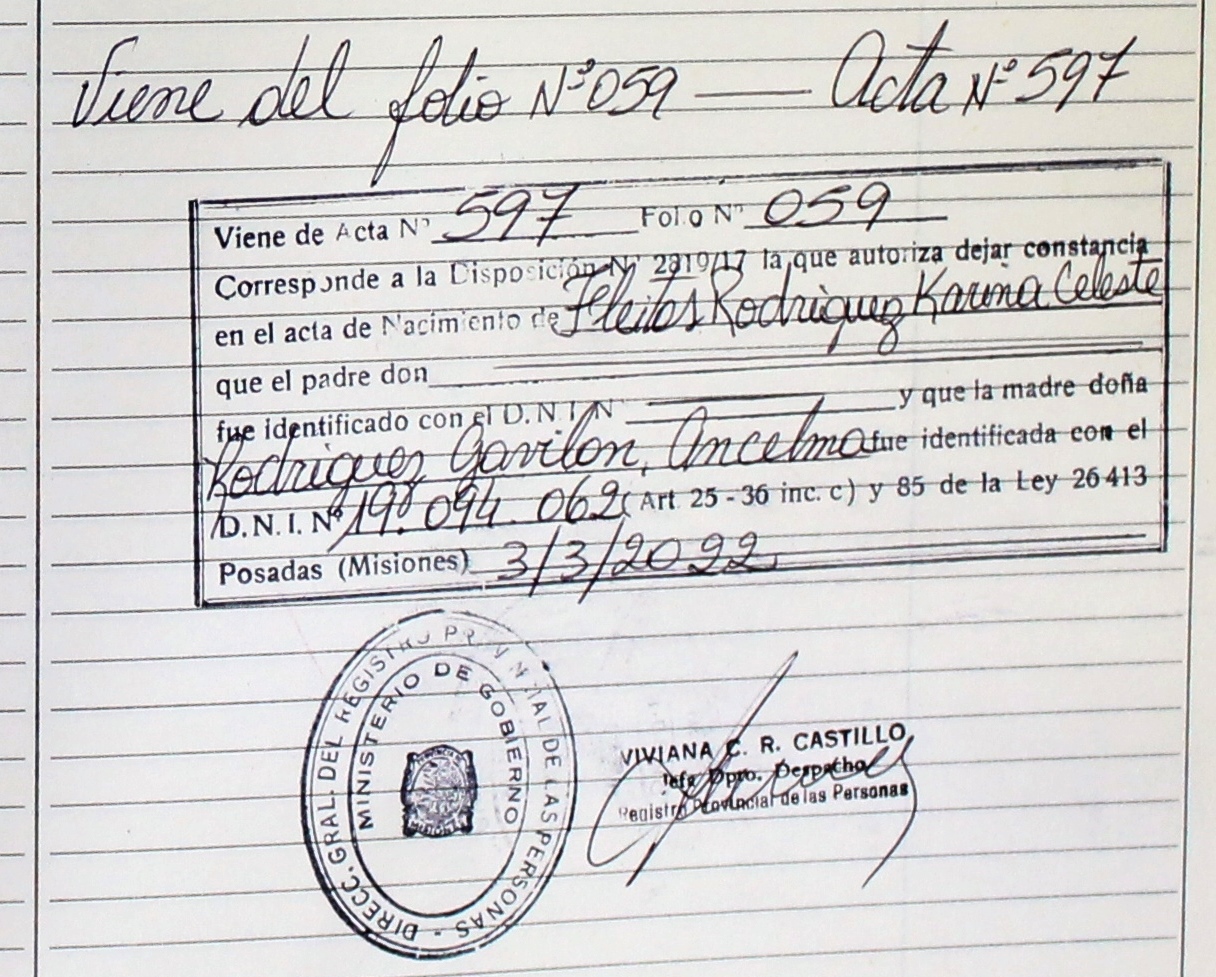 Viene del folio Nº 059 —— Acta Nº 597
Viene de Acta Nº 597 Folio Nº 059
Corresponde a la Disposición Nº 2819/17 la que autoriza dejar constancia
en el acta de Nacimiento de Fleitas Rodriguez Karina Celeste
que el padre don
fue identificado con el D.N.I. Nº ______ y que la madre doña
Rodriguez Gavilan, Ancelma fue identificada con el
D.N.I. Nº 19.094.062 (Art. 25 - 36 inc. c) y 85 de la Ley 26 413
Posadas (Misiones) 3/3/2022
DIRECC. GRAL. DEL REGISTRO PROVINCIAL DE LAS PERSONAS -
MINISTERIO DE GOBIERNO
MISIONES
VIVIANA C. R. CASTILLO
Jefa Dpto. Despacho
Registro Provincial de las Personas